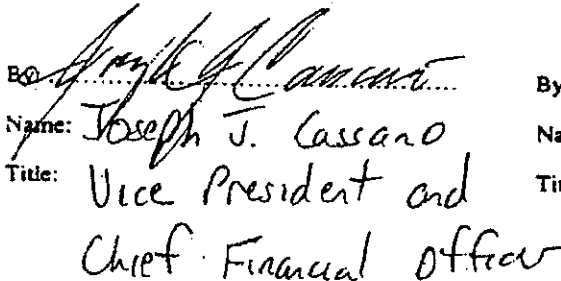 By Joseph J Cassano By
Name: Joseph J. Cassano Na
Title: Vice President and Tit
Chief Financial Officer